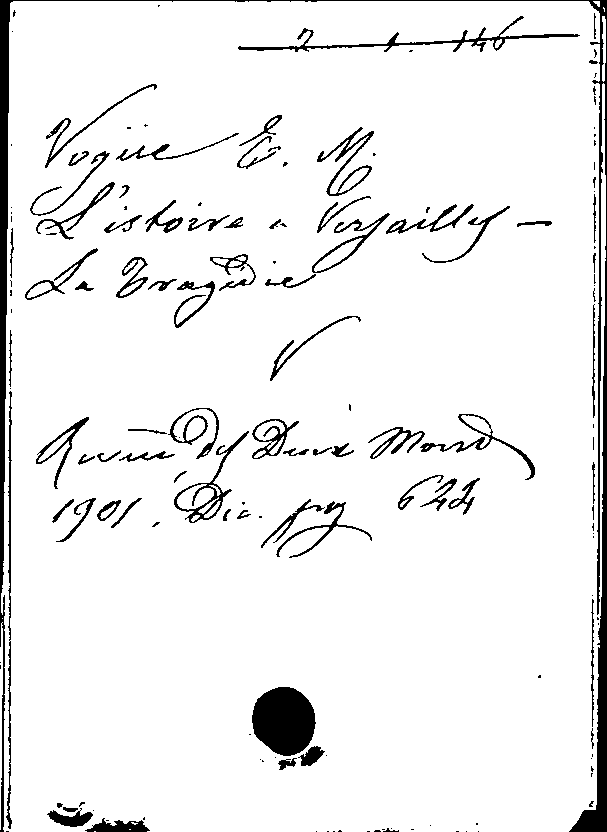 2 1. 146
Vogüe E. M.
L'istoire a Versailles —
La Tragédie
V
Revue des Deux Mond
1901. Dic. pag 622